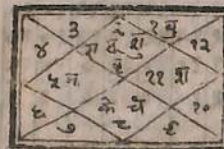 ३ १ बु
४ रा सू शु १२
बृ
५ मं ११ श
के चं
६ १०
७ ८ ९